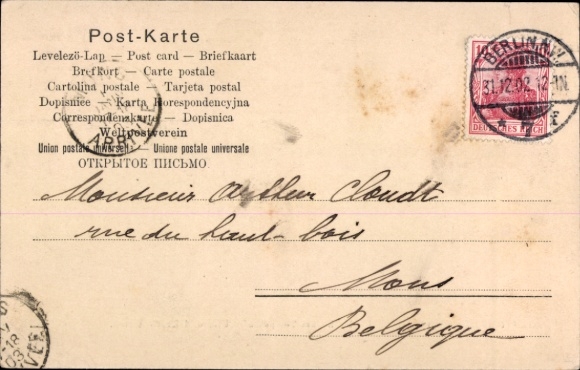 Post-Karte
Levelező-Lap — Post card — Briefkaart
Brefkort — Carte postale
Cartolina postale — Tarjeta postal
Dopisnice — Karta Korespondencyjna
Correspondenzkarte — Dopisnica
Weltpostverein
Union postale universelle — Unione postale universale
ОТКРЫТОЕ ПИСЬМО.
10
BERLIN N.W.
31.12.02.12-1N.
* 7 f
DEUTSCHES REICH
ARR
Monsieur Arthur Cloudt
rue du haut-bois
Mons
Belgique